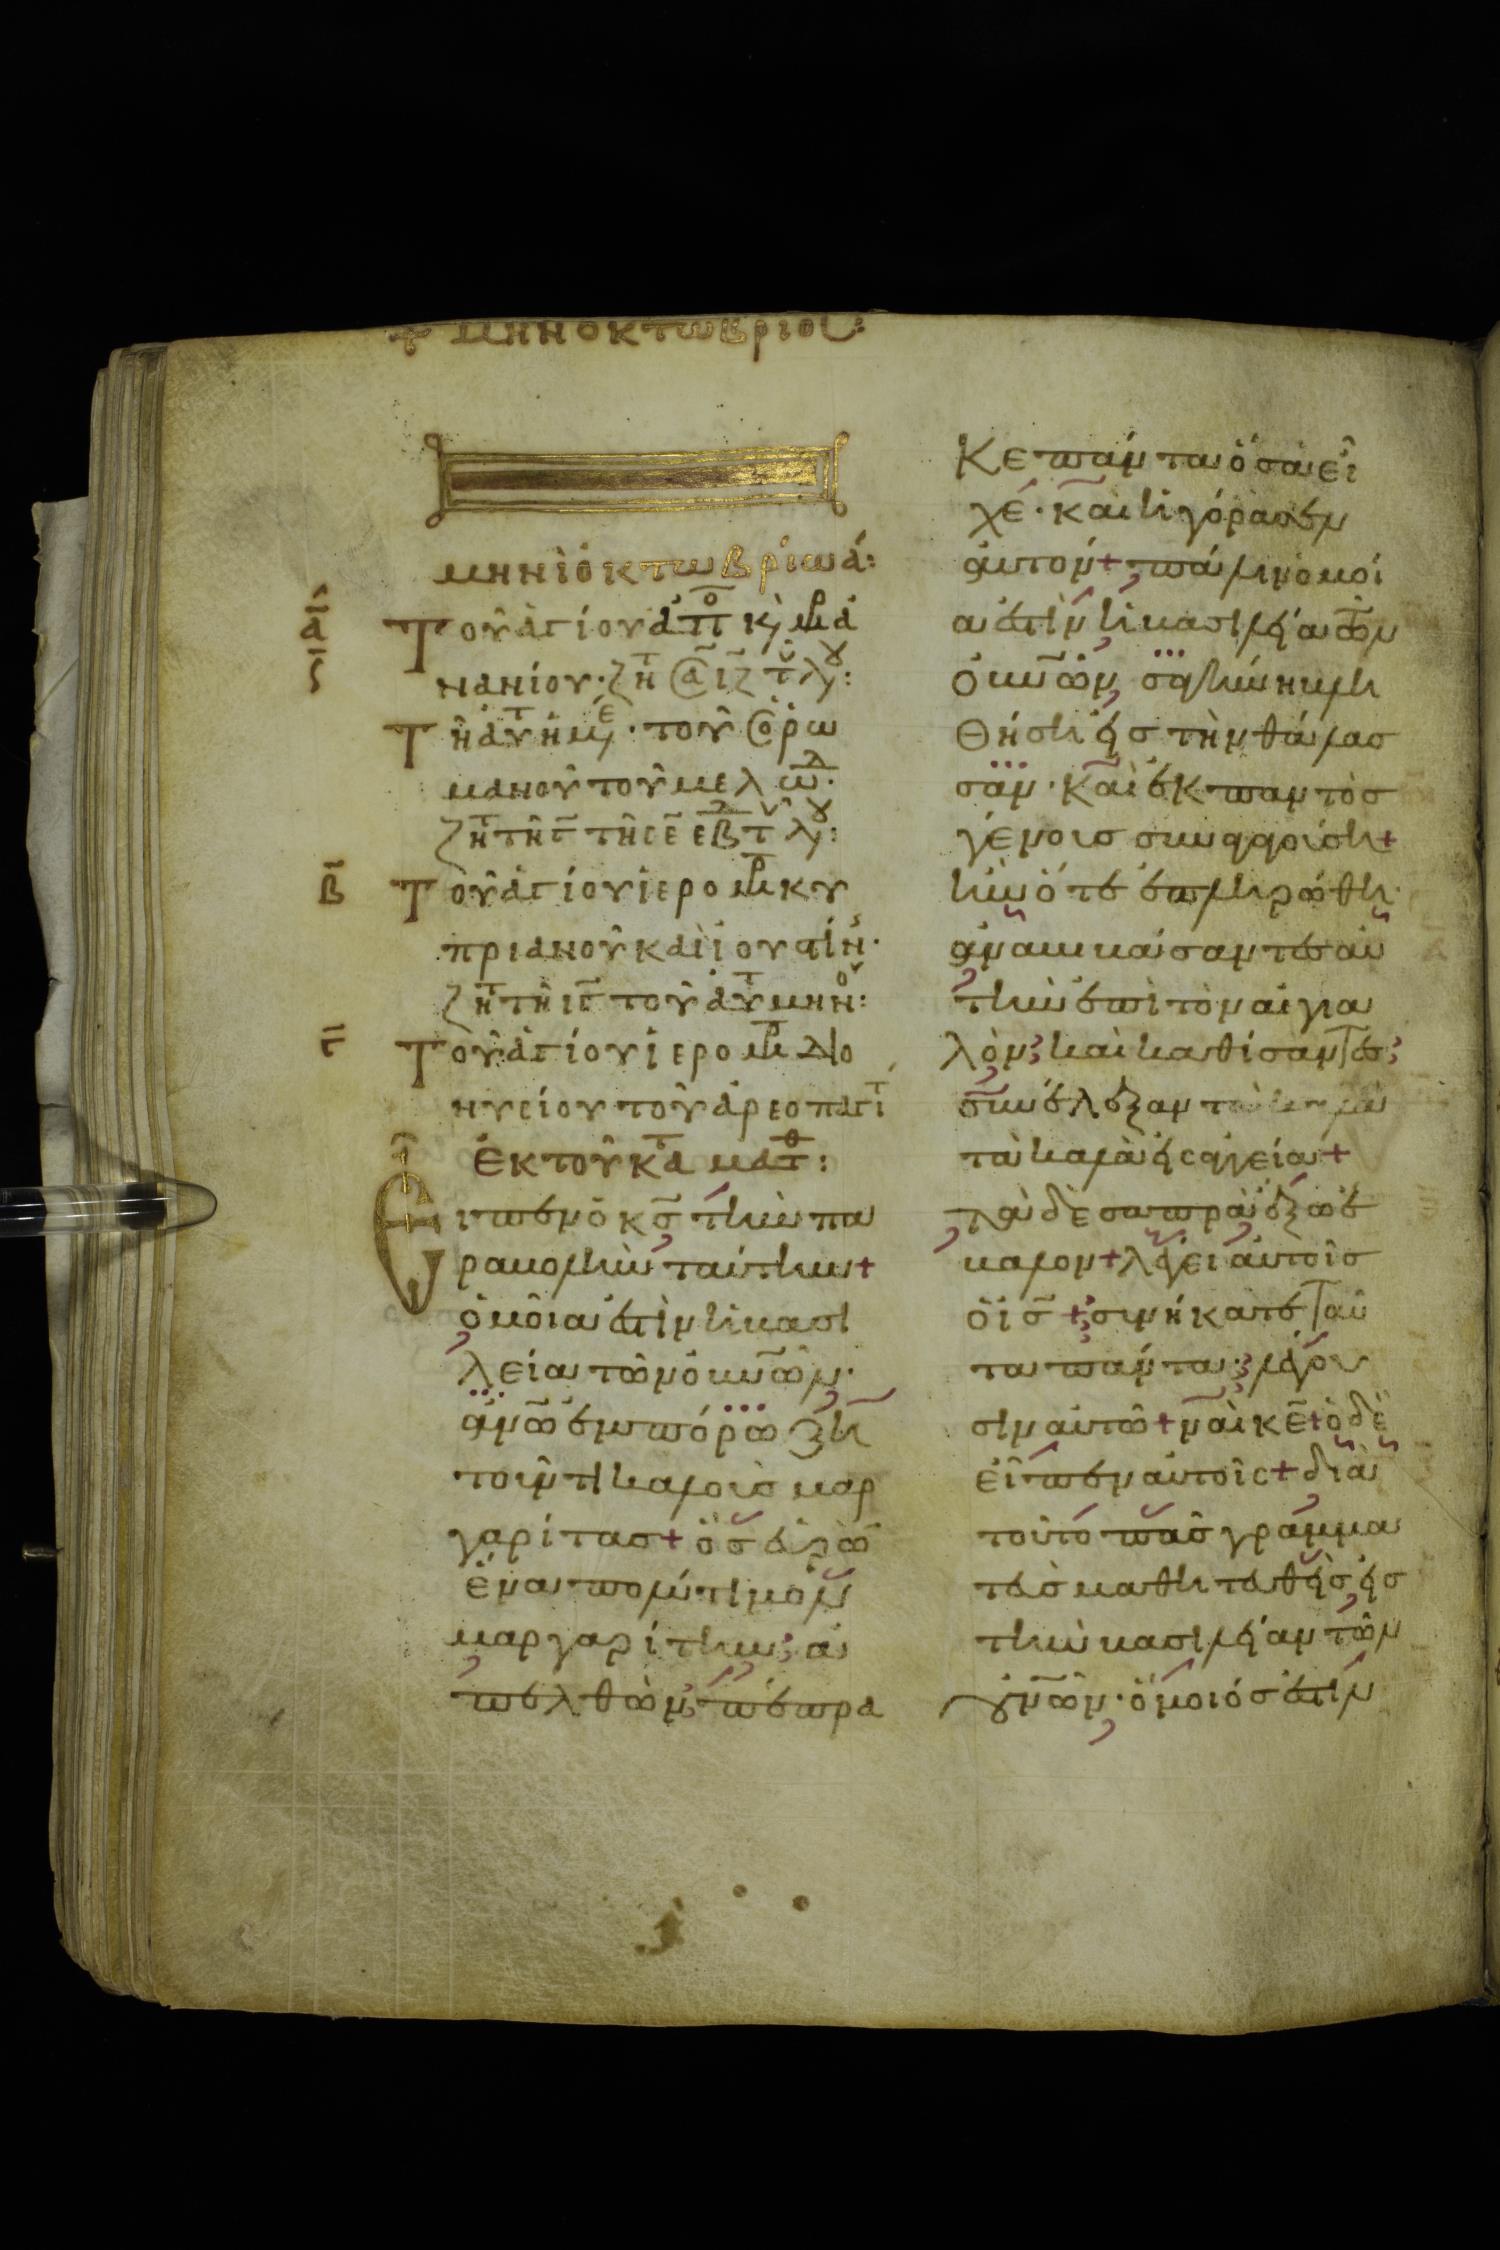 + μηνοκτωβριου:
μηνὶ ὀκτωβρίω ά:
ᾱ Τοῦ ἁγίου ἀπο κ, μρ ἀ
νανίου· ζητ σα ιζ τ λγ:
Τῆ αὐτ ἡμε· τοῦ ὁσ ρω
μανοῦ τοῦ μελωδ·
ζητ τῆ γ τῆς ε εβδ τ λγ:
Β Τοῦ ἁγίου ἱερομρ κυ
πριανοῦ καὶ ἰουστίν·
ζητ τῆ ιγ τοῦ αὐτ μην:
Γ Τοῦ ἁγίου ἱερομρ διο
νυσίου τοῦ ἀρεοπαγί
ἐκ τοῦ κατα ματθ:
Εἶπεν ὁ κς τὴν πα
ραβολὴν ταύτην+
ὁμοία ἐστὶν ἡ βασι
λεία τῶν οὐνῶν·
ἀνῶ ἐμπόρω ζη
τοῦντι καλοὺς μαρ
γαρίτας+ ὃς εὑρὼν
ἕνα πολύτιμον
μαργαρίτην; ἀ
πελθὼν; πέπρα
Κε πάντα ὅσα εἶ
χέ· καὶ ἠγόρασεν
αὐτόν+ πάλιν ὁμοί
α ἐστὶν ἡ βασιλεία τῶν
οὐνῶν σαγήνη βλη
Θήση εἰς τὴν θάλασ
σαν· καὶ ἐκ παντὸς
γένους συναγαγούση+
ἣν ὅτε ἐπληρώθη·
ἀναβιβάσαντες αὐ
τὴν ἐπὶ τὸν αἰγια
λὸν; καὶ καθίσαντες;
συνέλεξαν
τὰ καλὰ εἰς ἀγγεῖα+
τὰ δὲ σαπρὰ ἔξω ἔ
βαλον+ λέγει αὐτοῖς
ὁ ις +; συνήκατε ταῦ
τα πάντα; λέγου
σιν αὐτῶ+ ναὶ κε+ ὁ δὲ
εἶπεν αὐτοῖς+ διὰ
τοῦτο πᾶς γραμμα
τεὺς μαθητευθεὶς εἰς
τὴν βασιλείαν τῶν
οὐνῶν· ὅμοιός ἐστιν